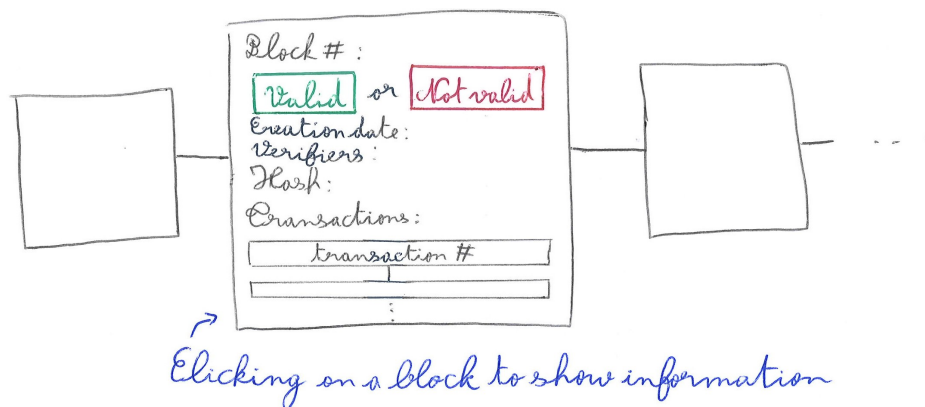 Block # :
Valid or Not valid
Creation date:
Verifiers :
Hash:
Transactions:
transaction #
Clicking on a block to show information